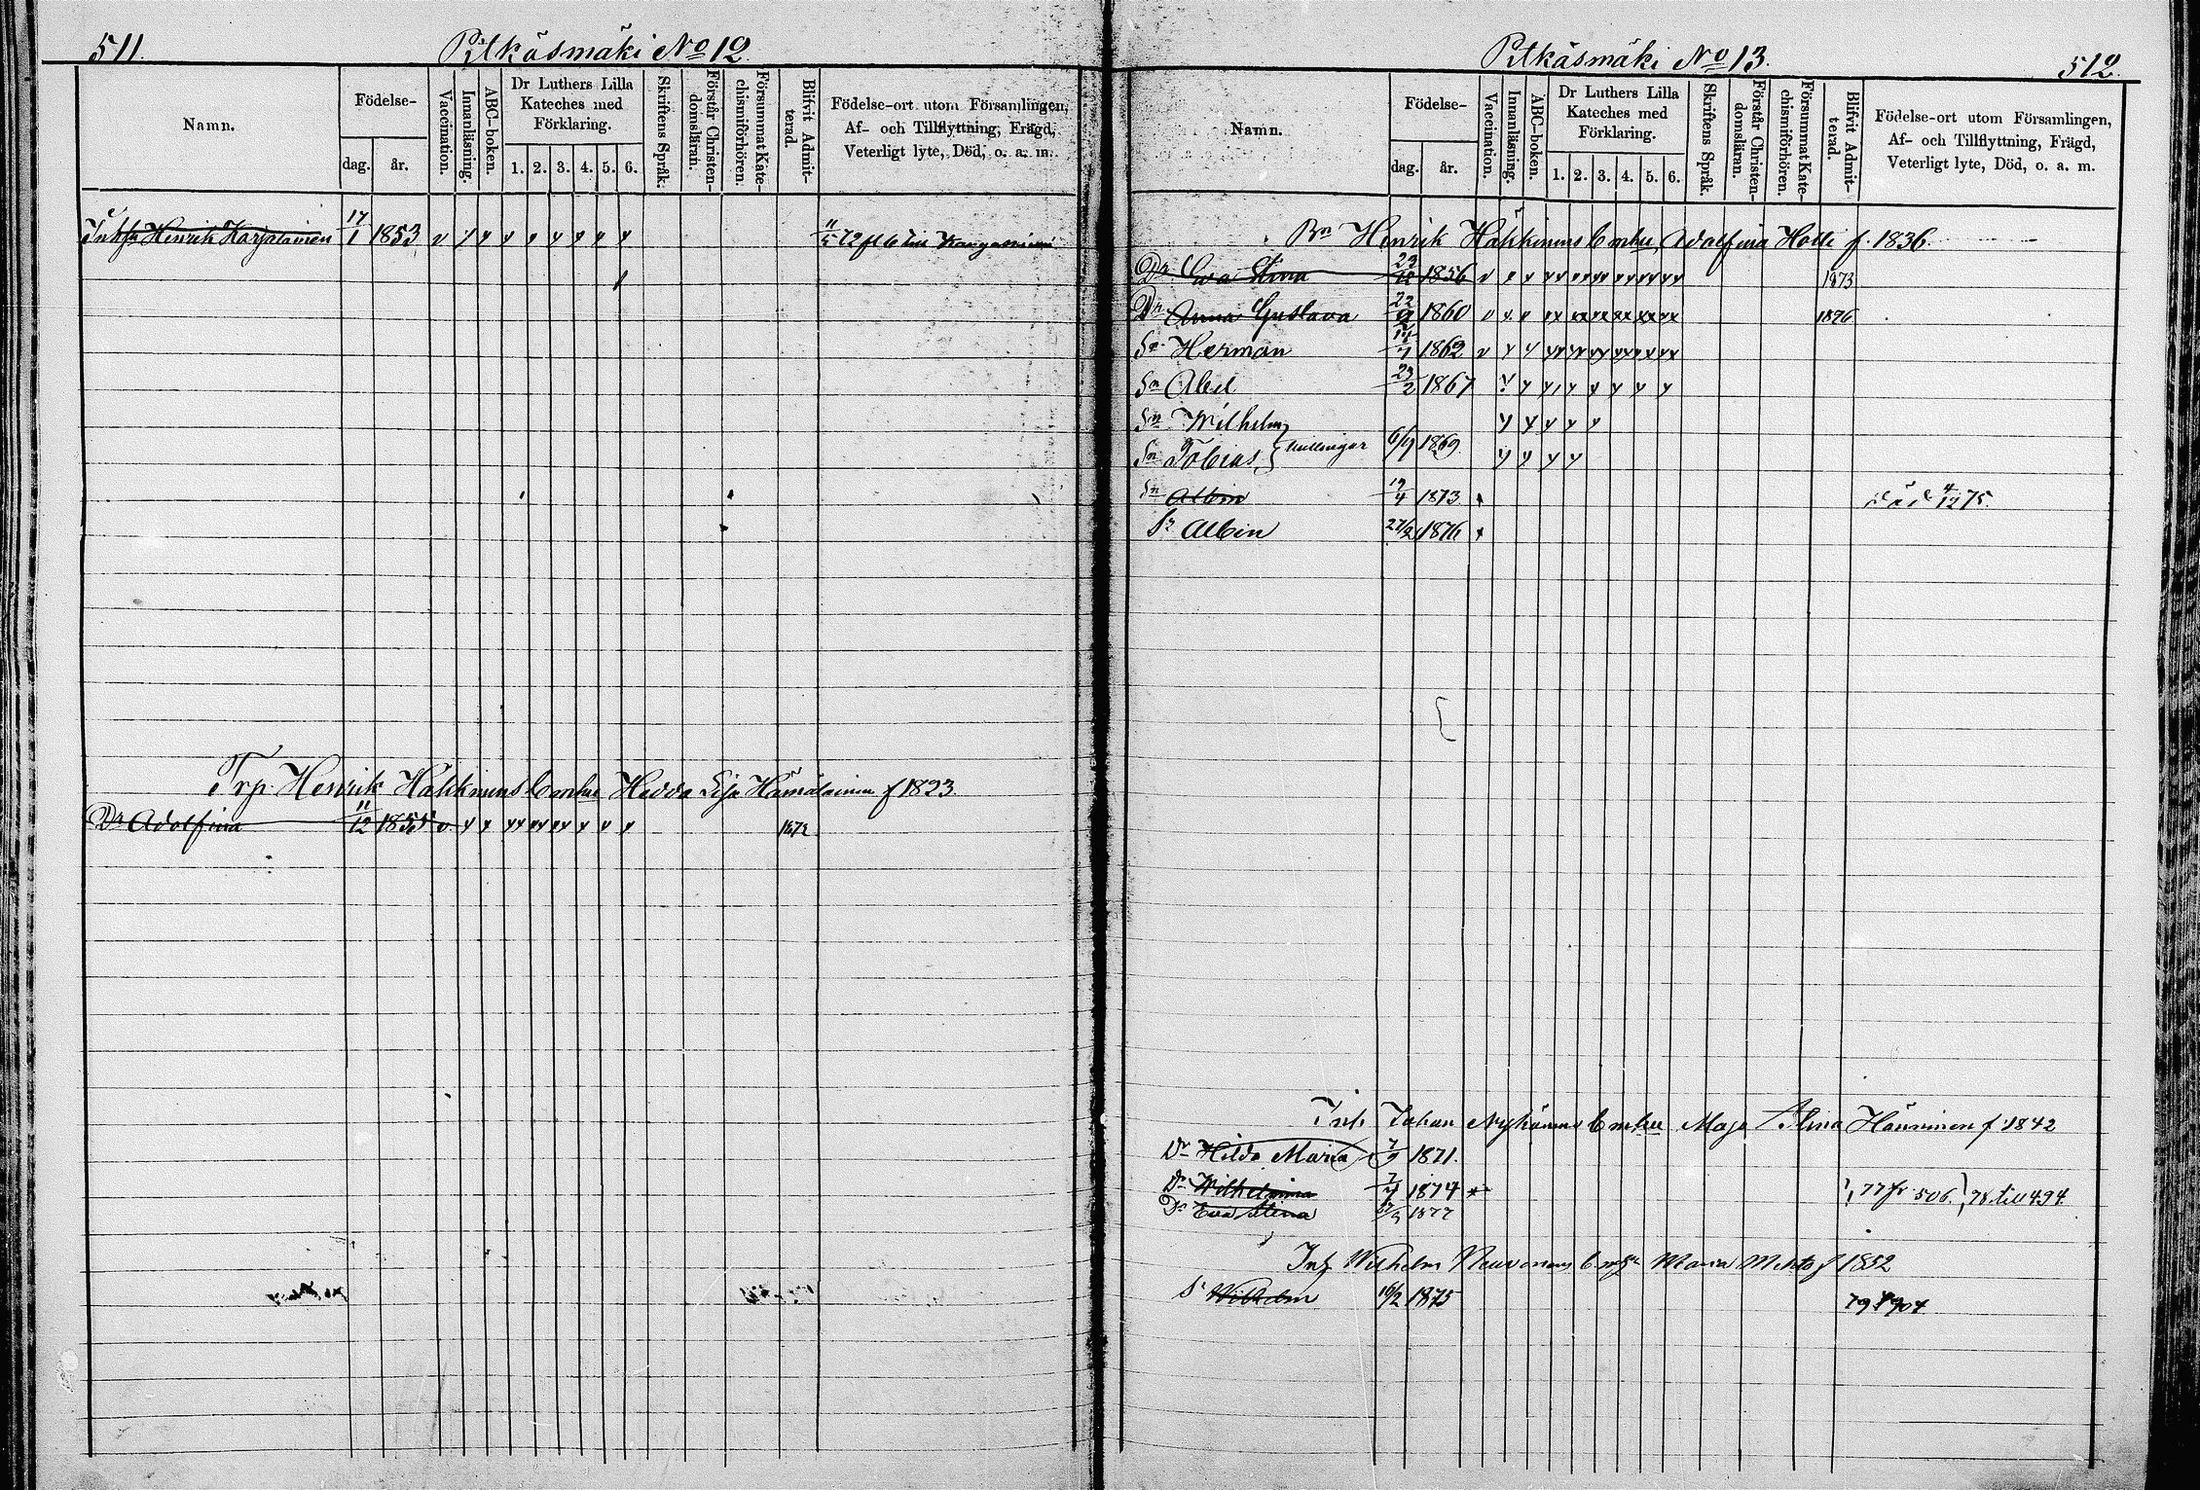 511. Pitkäsmäki No 12.
Namn.
Födelse-
dag. år.
Vaccination.
Innanläsning.
ABC-boken.
Dr Luthers Lilla Kateches med Förklaring.
1. 2. 3. 4. 5. 6.
Skriftens Språk.
Förstår Christendomsläran.
Försummat Katechismiförhören.
Blifvit Admitterad.
Födelse-ort utom Församlingen,
Af- och Tillflyttning, Frägd,
Veterligt lyte, Död, o. a. m.
Henrik Karjalainen 17/1 1853 v
Trp Henrik Häkkinens Enka Hedda Lisa Hämäläinen f 1823.
Dr Adolfina 11/12 1855 v 1872
Pitkäsmäki No 13. 512.
Namn.
Födelse-
dag. år.
Vaccination.
Innanläsning.
ABC-boken.
Dr Luthers Lilla Kateches med Förklaring.
1. 2. 3. 4. 5. 6.
Skriftens Språk.
Förstår Christendomsläran.
Försummat Katechismiförhören.
Blifvit Admitterad.
Födelse-ort utom Församlingen,
Af- och Tillflyttning, Frägd,
Veterligt lyte, Död, o. a. m.
Bn Henrik Häkkinens Adolfina Hotti f. 1836.
Dr Eva Stina 1856 v 1873
Dr Anna Gustava 1860 v 1876
Sn Herman 1862 v
Sn Abel 23/2 1867
Sn Wilhelm
Sn Tobias } tvillingar 6/9 1869.
Sn Albin 19/4 1873 död 4/12 75.
Sn Albin 27/2 1876
Johan Maja Stina Hänninen f 1842
Dr Hilda Maria 7/9 1871.
Dr Wilhelmina 1874 77 fr 506. 78 till 494
Dr Eva Stina 1877
Inh Wilhelm Maria f 1852
S Wilhelm 16/2 1875